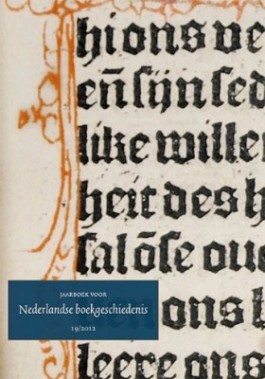 hions ve
eñ ſijn ſed
like wille
heit des h
ſalõſe oue
JAARBOEK VOOR
Nederlandse boekgeschiedenis
19/2012
ons
leere ons